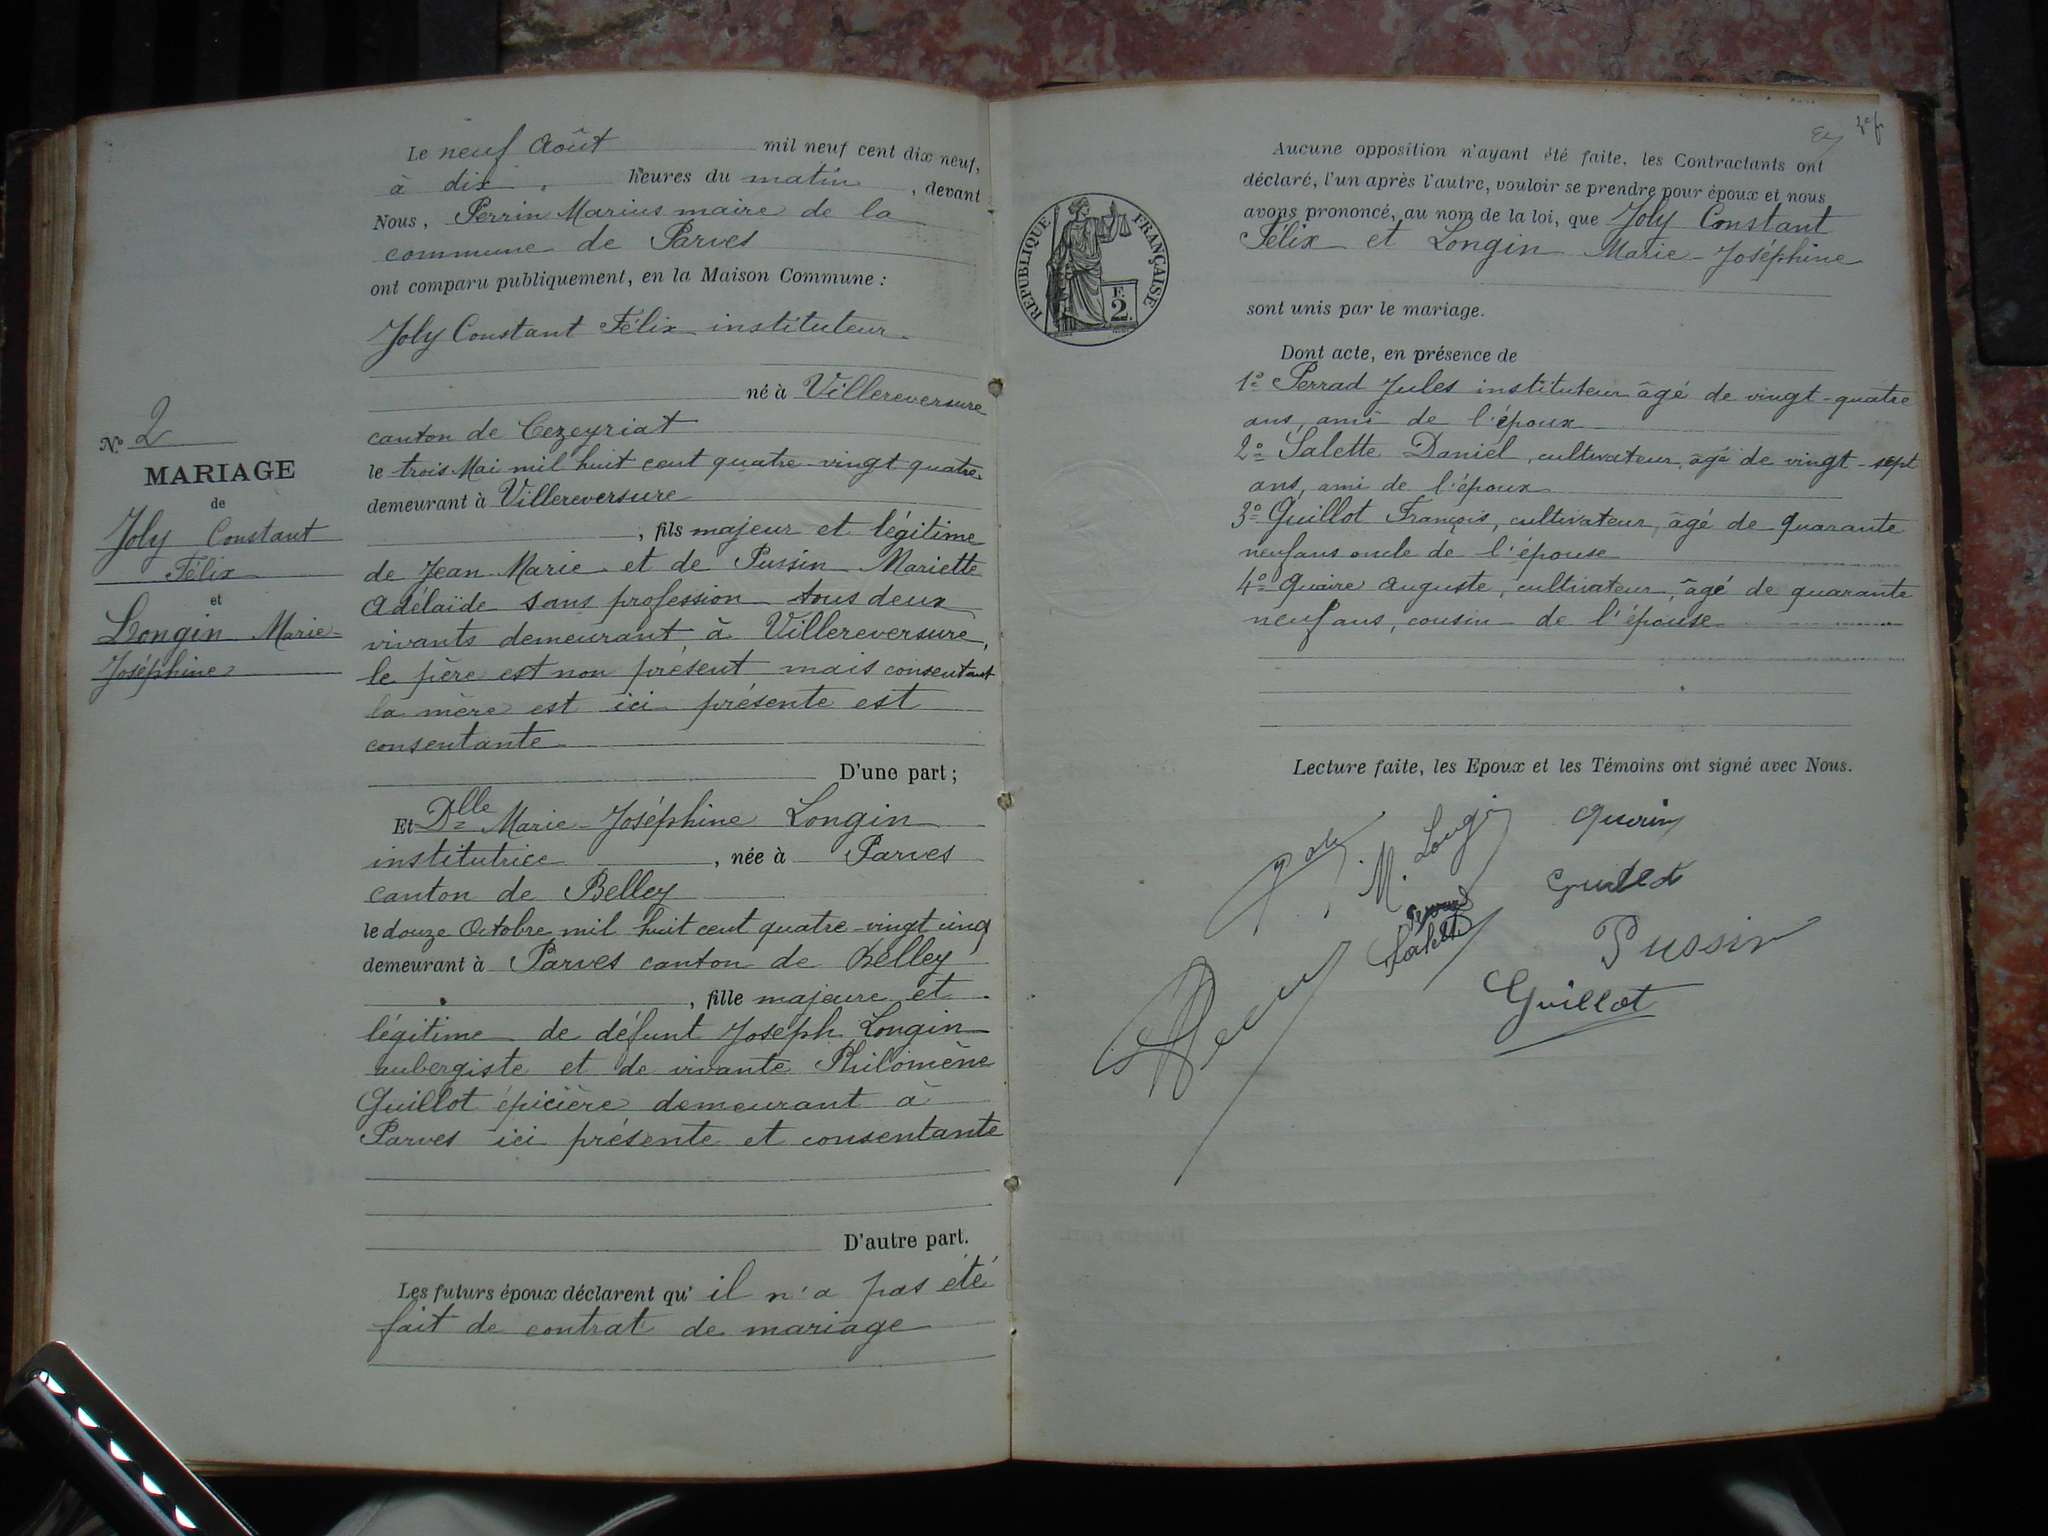 Le neuf Août mil neuf cent dix neuf,
à dix heures du matin, devant
Nous, Perrin Marius maire de la
commune de Parves
ont comparu publiquement, en la Maison Commune :
Joly Constant Félix instituteur
né à Villereversure
canton de Cezeyriat
le trois Mai mil huit cent quatre-vingt quatre
demeurant à Villereversure
, fils majeur et légitime
de Jean Marie et de Pussin Mariette
Adélaïde sans profession tous deux
vivants demeurant à Villereversure,
le père est non présent mais consentant
la mère est ici présente est
consentante
D'une part ;
Et Dlle Marie-Joséphine Longin
institutrice, née à Parves
canton de Belley
le douze Octobre mil huit cent quatre-vingt cinq
demeurant à Parves canton de Belley
, fille majeure et
légitime de défunt Joseph Longin
aubergiste et de vivante Philomène
Guillot épicière demeurant à
Parves ici présente et consentante
D'autre part.
Les futurs époux déclarent qu'il n'a pas été
fait de contrat de mariage
No 2
MARIAGE
de
Joly Constant
Félix
et
Longin Marie-
Joséphine
RÉPUBLIQUE FRANÇAISE
F.
2.
Aucune opposition n'ayant été faite, les Contractants ont
déclaré, l'un après l'autre, vouloir se prendre pour époux et nous
avons prononcé, au nom de la loi, que Joly Constant
Félix et Longin Marie-Joséphine
sont unis par le mariage.
Dont acte, en présence de
1º Perrad Jules instituteur âgé de vingt-quatre
ans, ami de l'époux
2º Salette Daniel, cultivateur, âgé de vingt-sept
ans, ami de l'époux
3º Guillot François, cultivateur, âgé de quarante
neuf ans oncle de l'épouse
4º Auguste, cultivateur, âgé de quarante
neuf ans, cousin de l'épouse
Lecture faite, les Epoux et les Témoins ont signé avec Nous.
Joly
M. Longin
Pussin
Guillot